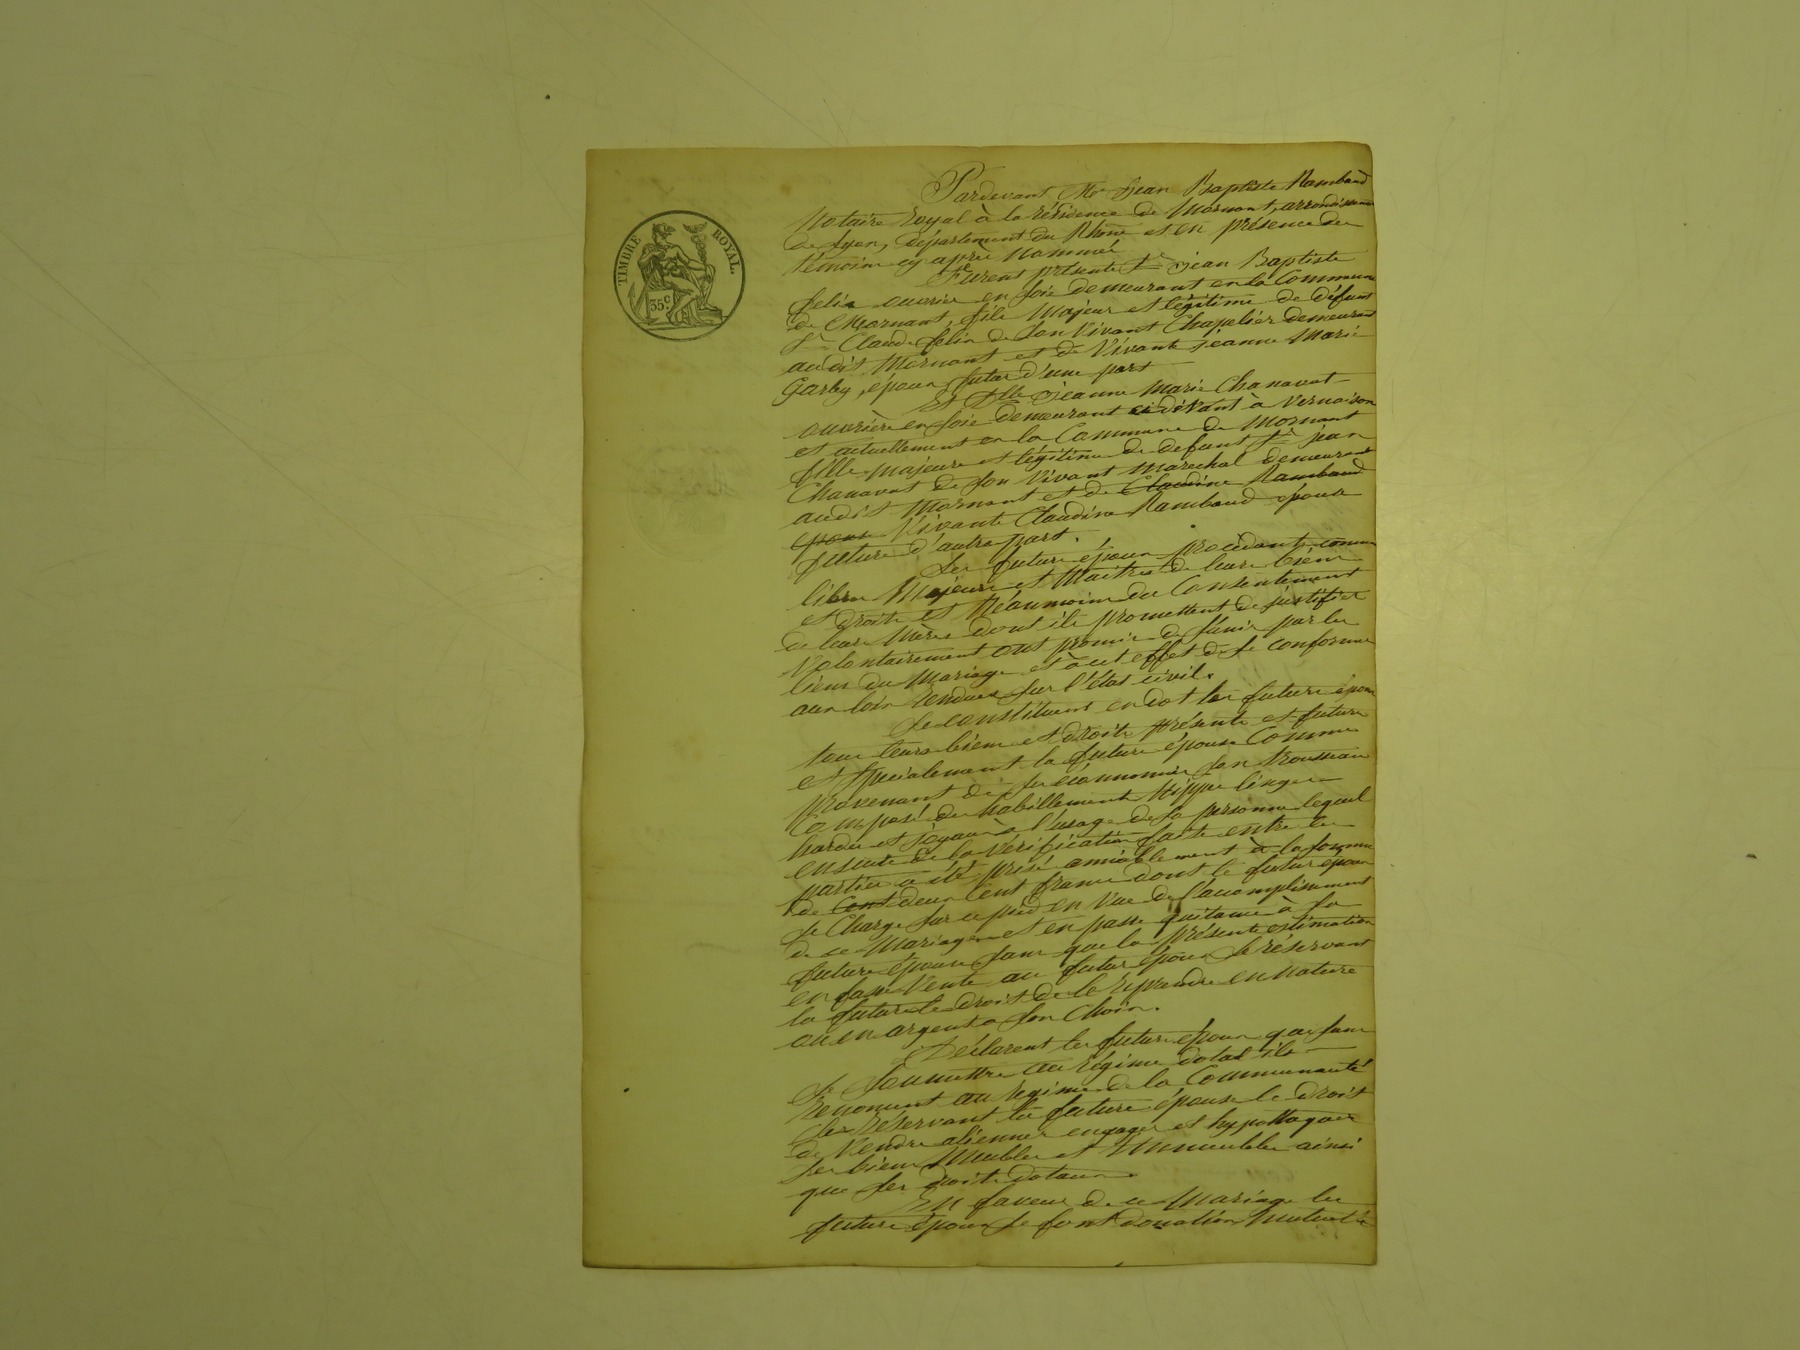 TIMBRE ROYAL.
35 c.
Pardevant Me Jean Baptiste Rambaud
Notaire Royal à la résidence de Mornant, arrondissement
de Lyon, département du Rhône et en présence des
témoins cy après Nommés
Furent présents Sr Jean Baptiste
felix ouvrier en soie demeurant en la Commune
de Mornant, fils Majeur et légitime de défunt
Sr Claude felix de son Vivant Chapelier demeurant
audit Mornant et de Vivante jeanne Marie
Garby, époux futur d'une part
Et Dlle Jeanne Marie Chanavat
ouvrière en soie demeurant ci devant à Vernaison
et actuellement en la Commune de Mornant
fille majeure et légitime de defunt Sr jean
Chanavat de son Vivant Marechal demeurant
audit Mornant et de Claudine Rambaud
épouse Vivante Claudine Rambaud épouse
future d'autre part.
Les future époux procédants comme
libres Majeurs et Maitres de leurs biens
et droits et Néanmoins du Consentement
de leurs Mères dont ils promettent de justifier
Volontairement ont promis de s'unir par les
liens du Mariage et à cet effet de se conformer
aux loix rendues sur l'état civil.
Se constituent en dot les future époux
tous leurs biens et droits présents et future
et spécialement la future épouse Comme
provenant de ses économies son trousseau
Composé de habillements Nippes linges
hardes et joyaux à l'usage de sa personne lequel
ensuite de la Vérification faite entre les
parties a été prisé amiablement à la somme
de Cent deux Cent francs dont le futur époux
se Charge sur ce pied en Vue de l'accomplissement
de ce Mariage et en passe quitance à sa
future épouse sans que la présente estimation
en fasse Vente au futur époux se réservant
la future le droit de le reprendre en Nature
ou en argent a son Choix.
Déclarent les future époux que sans
se soumettre au régime dotal ils
Renoncent au régime de la Communauté
se Réservant la future épouse le droit
de Vendre aliénner engager et hypottaquer
ses biens Meubles et Immeubles ainsi
que ses droits dotaux
En faveur de ce Mariage les
future époux se font donation Mutuelle